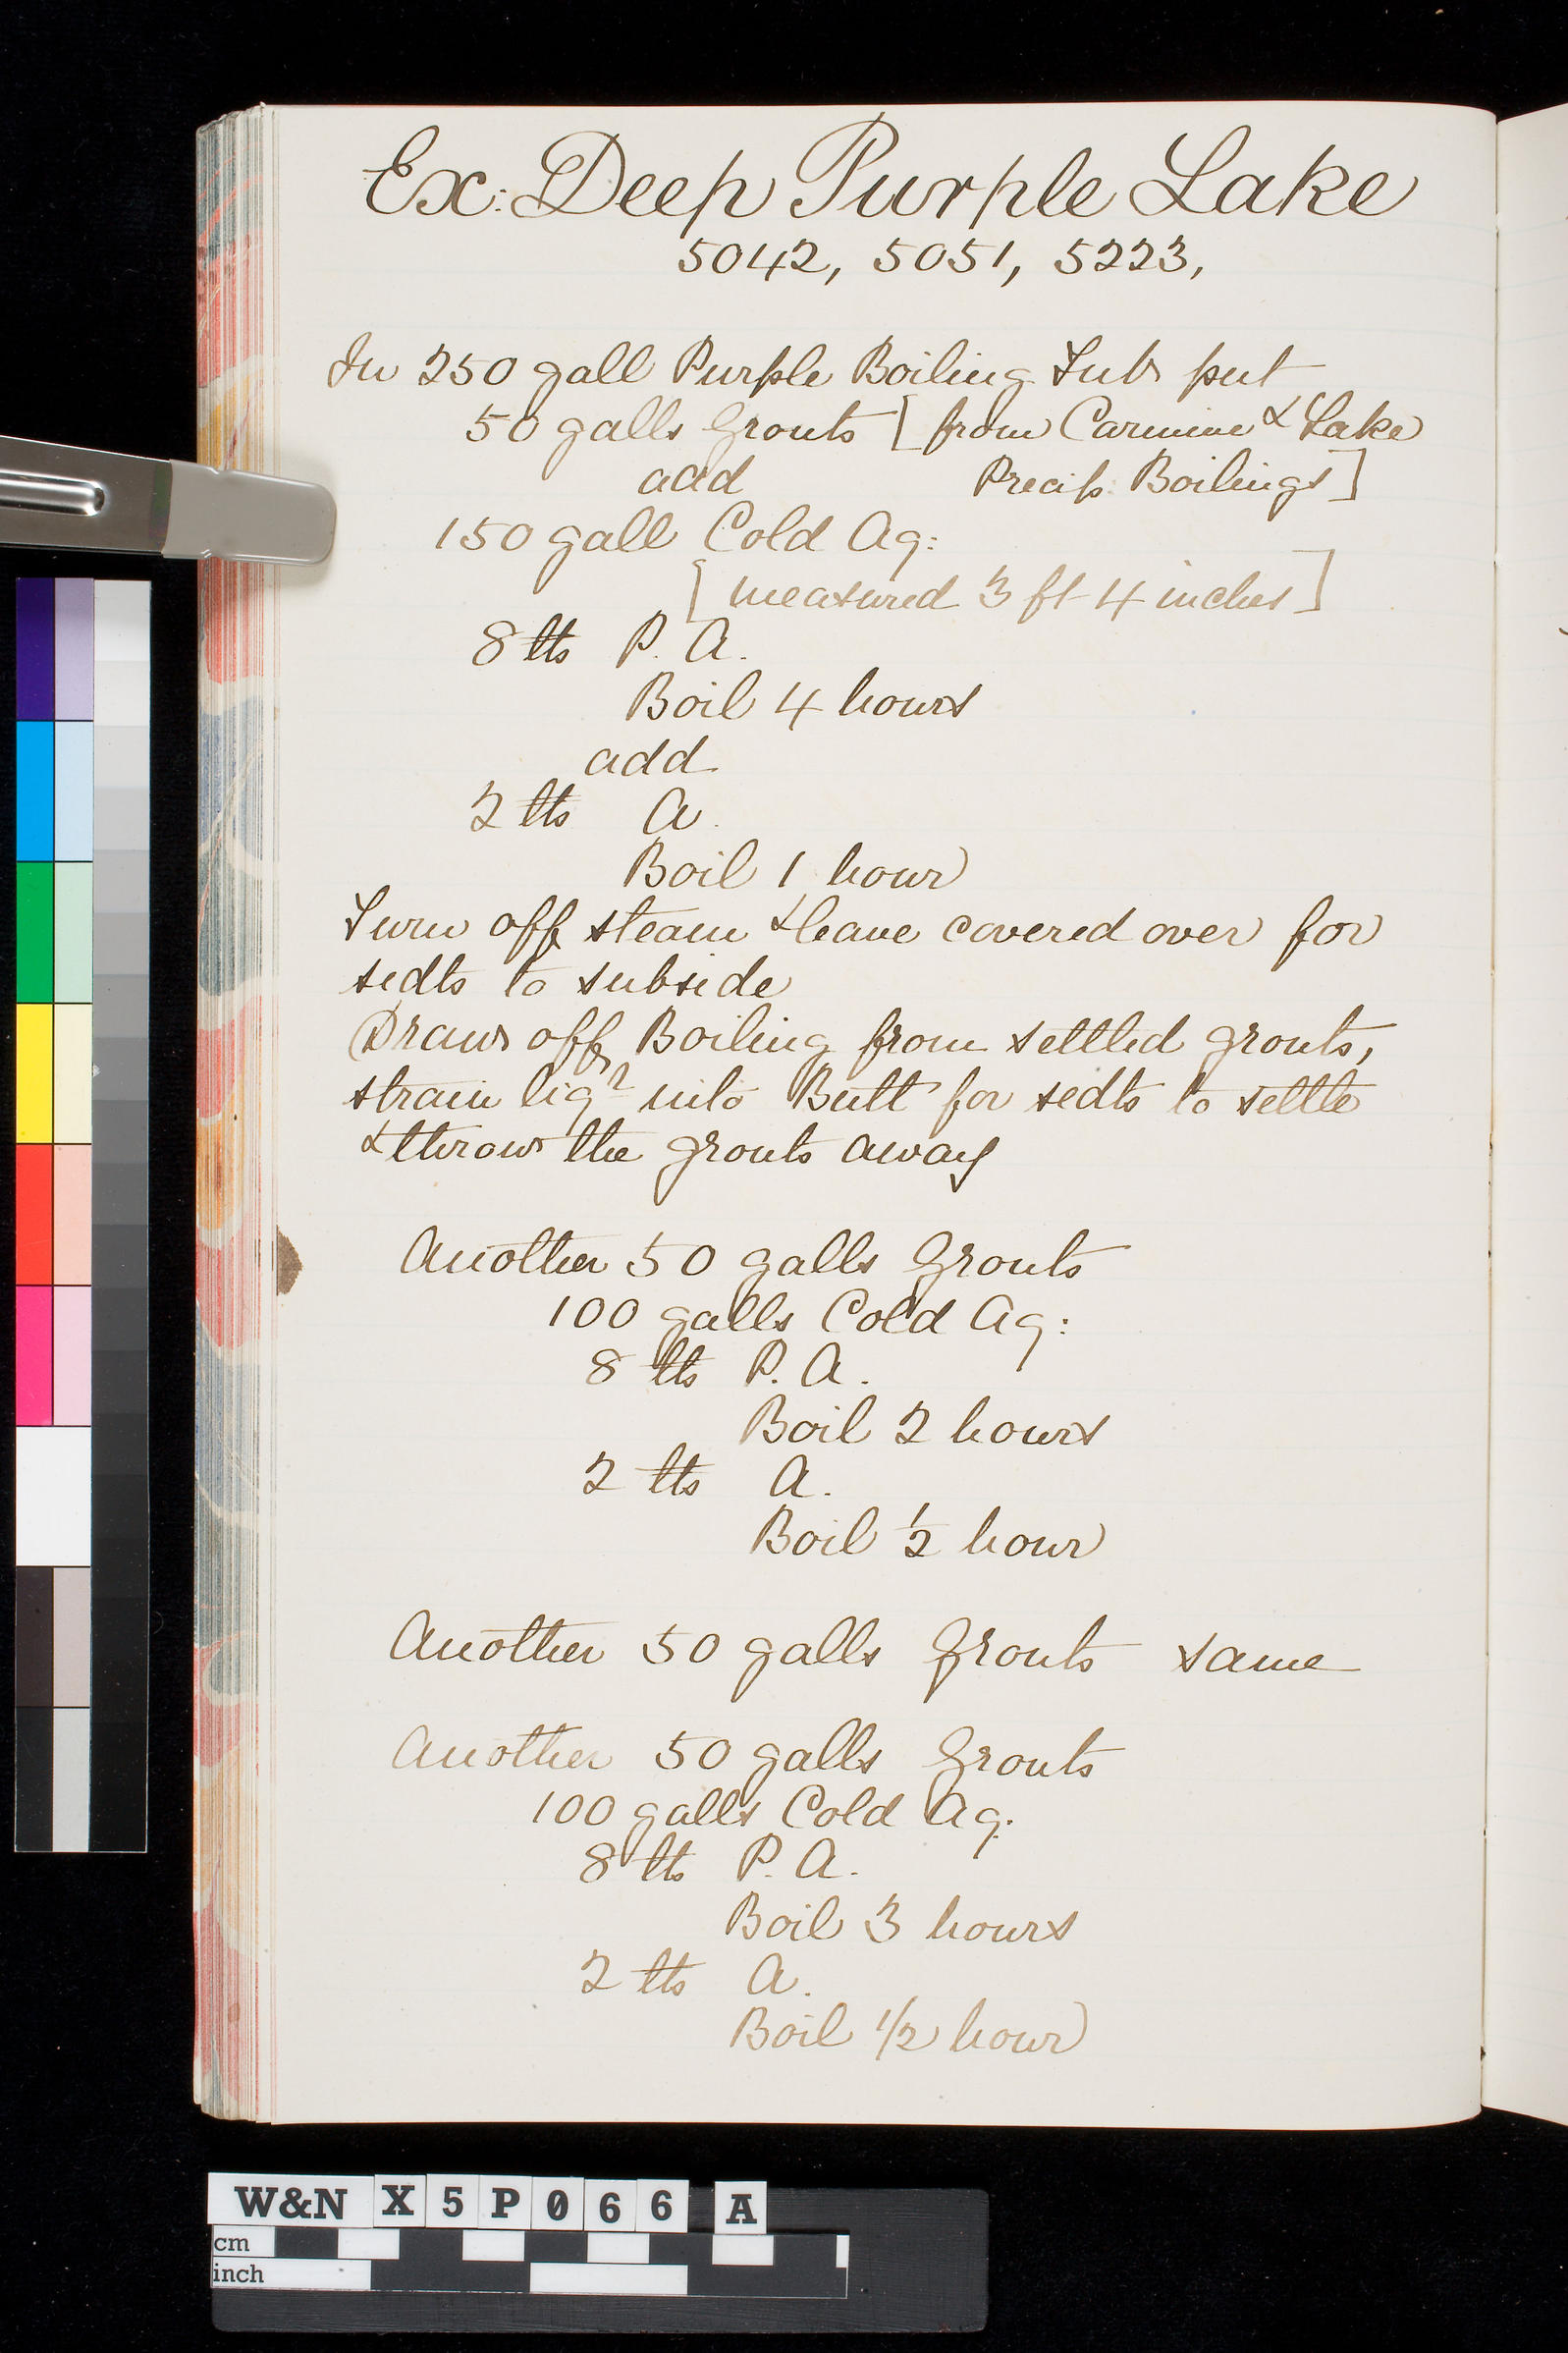 Ex: Deep Purple Lake
5042, 5051, 5223,
In 250 gall Purple Boiling Tub put
50 galls Grouts [from Carmine & Lake
add Precip. Boilings]
150 gall Cold Aq:
[measured 3 ft 4 inches]
8 lbs P. A.
Boil 4 hours
add
2 lbs A.
Boil 1 hour
Turn off steam & leave covered over for
sedts to subside
Draw off Boiling from settled grouts,
strain liqr into Butt for sedts to settle
& throw the grouts away
Another 50 galls Grouts
100 galls Cold Aq:
8 lbs P. A.
Boil 2 hours
2 lbs A.
Boil 1/2 hour
Another 50 galls Grouts same
Another 50 galls Grouts
100 galls Cold Aq:
8 lbs P. A.
Boil 3 hours
2 lbs A.
Boil 1/2 hour
W&N X5P066 A
cm
inch